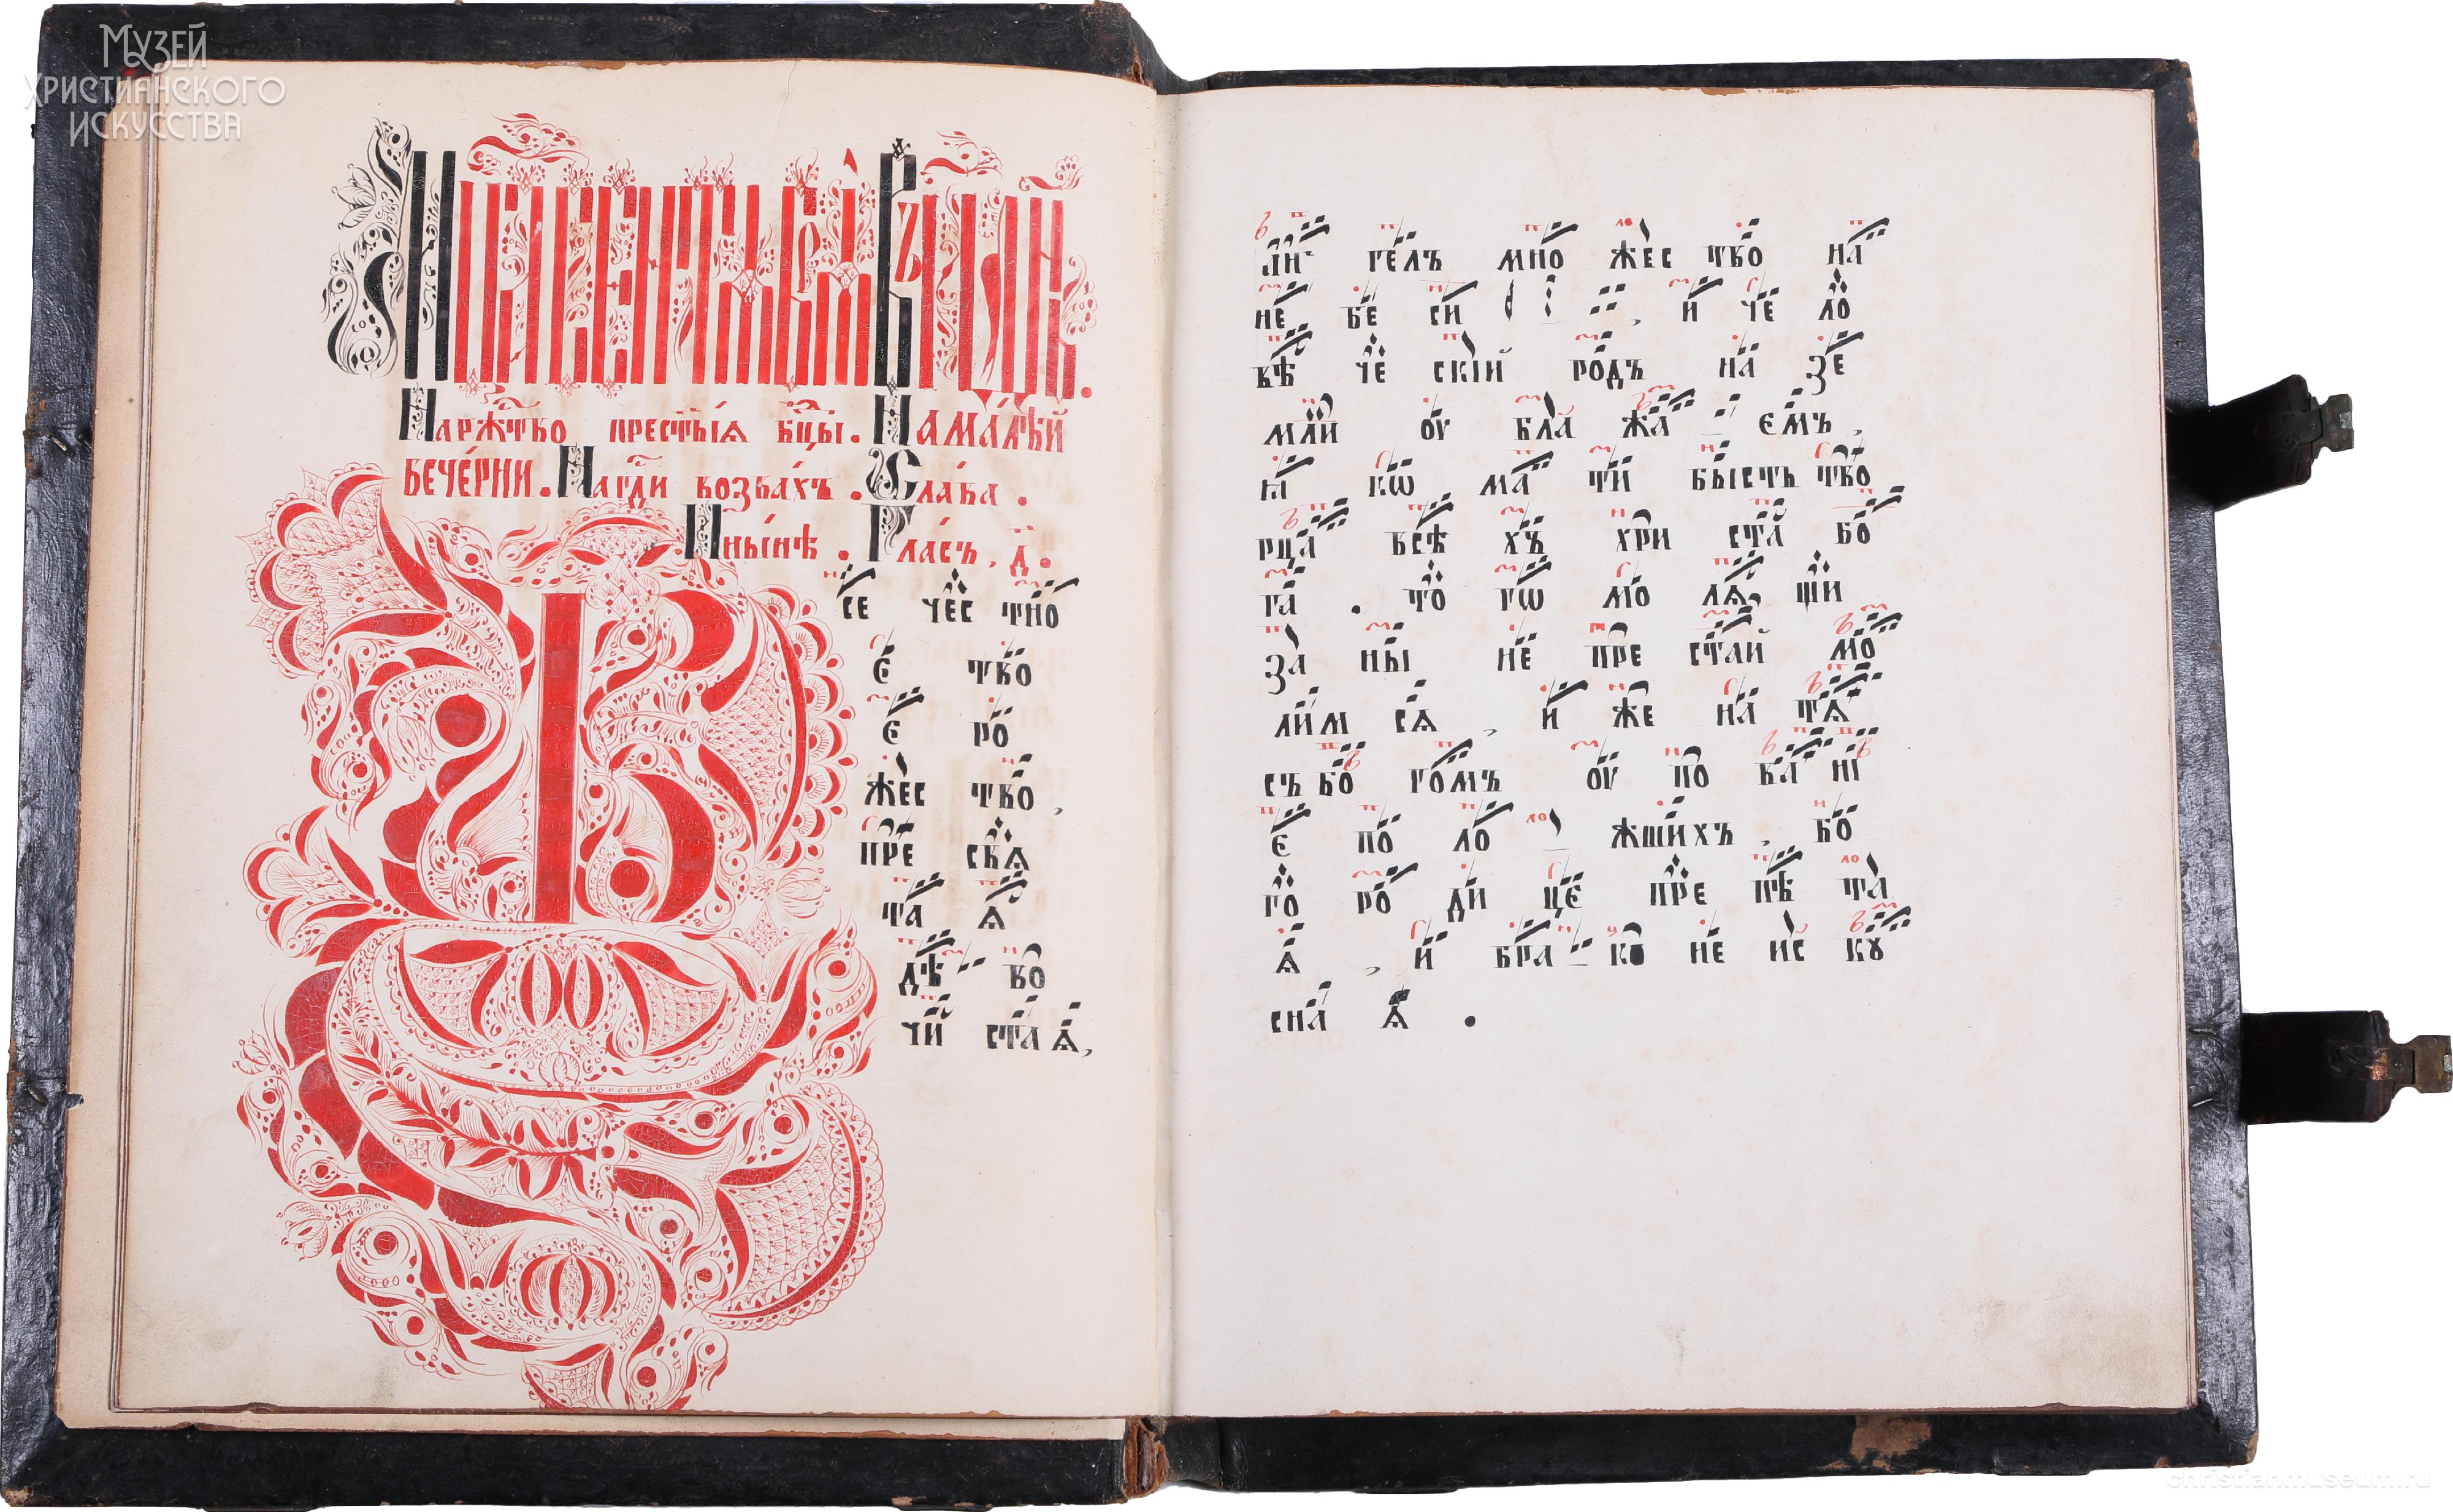 Музей
Христианского
Искусства
Мца сентѧбрѧ въ и҃ день.
На рж҃тво прест҃ы́ѧ бц҃ы. На ма́лѣй
вече́рни. На гд҃и возва́хъ. Сла́ва.
И ны́нѣ. Гла́съ, д҃.
В
се чес тно
є тво
є ро
жес тво,
пре свѧ
та ѧ
дѣ во
чи ста ѧ,
ан гелъ мно жес тво на
не бе си , и че ло
вѣ че скїй родъ на зе
мли оу бла жа емъ,
ꙗ кѡ ма ти бысть тво
рца всѣ хъ хри ста бо
га . то гѡ мо лѧ щи
за ны не пре стай мо
лим сѧ , и же на тѧ
съ бо гомъ оу по ва нї
є по ло жшихъ , бо
го ро ди це пре пѣ та
ѧ , и бра ко не ис кꙋ
сна ѧ .
christianmuseum.ru